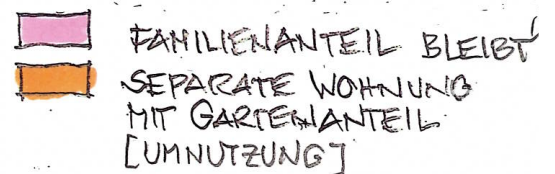 FAMILIENANTEIL BLEIBT
SEPARATE WOHNUNG
MIT GARTENANTEIL
[UMNUTZUNG]